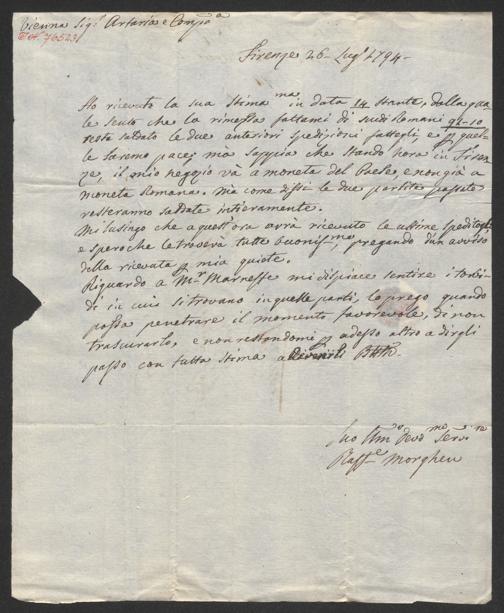 Vienna Sigri Artaria e Compia
Firenze 26 Lugl 1794
Ho ricevuto la sua stimama in data 14 stante, dalla qua
le sento che la rimessa fattami di scudi Romani 94-10
resta saldato le due anteriori spedizioni fattegli, e p quel
le saremo pace; mà sappia che stando hora in Firen
ze, il mio negozio và a moneta del Paese, e non già a
moneta Romana. Mà come dissi le due partite passate
resteranno saldate intieramente.
Mi lusingo che a quest'ora avrà ricevuto le ultime speditegli
e spero che le troverà tutte buonissme, pregando d'un avviso
della ricevuta p mia quiete.
Riguardo a Mr Marneffe mi dispiace sentire i torbi
di in cui si trovano in quelle parti, lo prego quando
possa penetrare il momento favorevole, di non
trascurarlo, e non restandomi p adesso altro a dirgli
passo con tutta stima a
Suo Umo Devmo Servre
Raffle Morghen